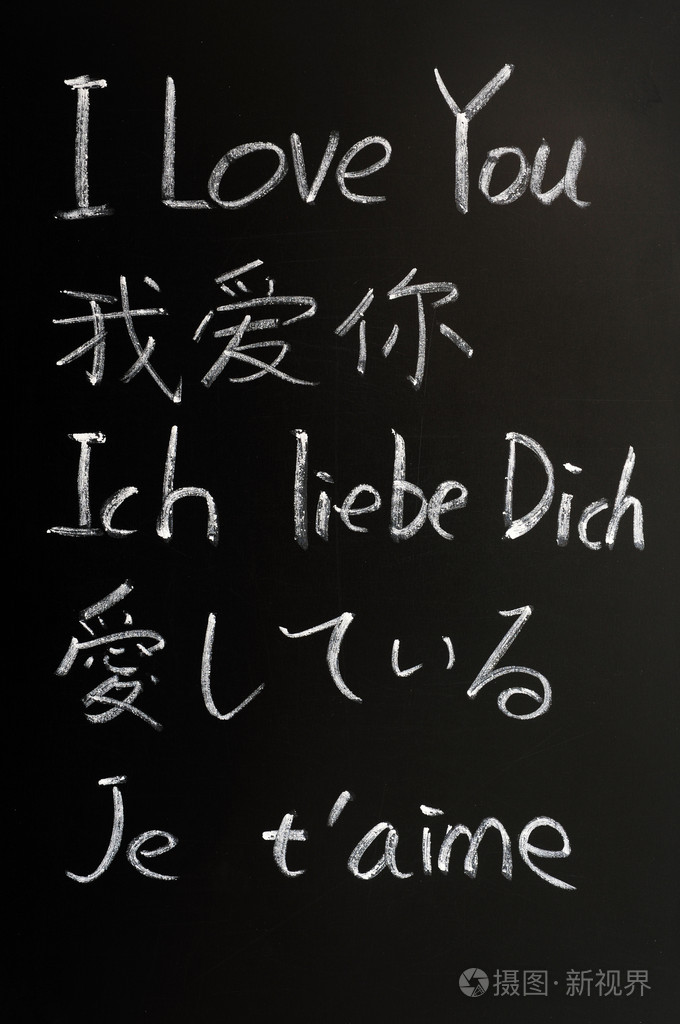 I Love You
我爱你
Ich liebe Dich
愛している
Je t'aime
摄图·新视界